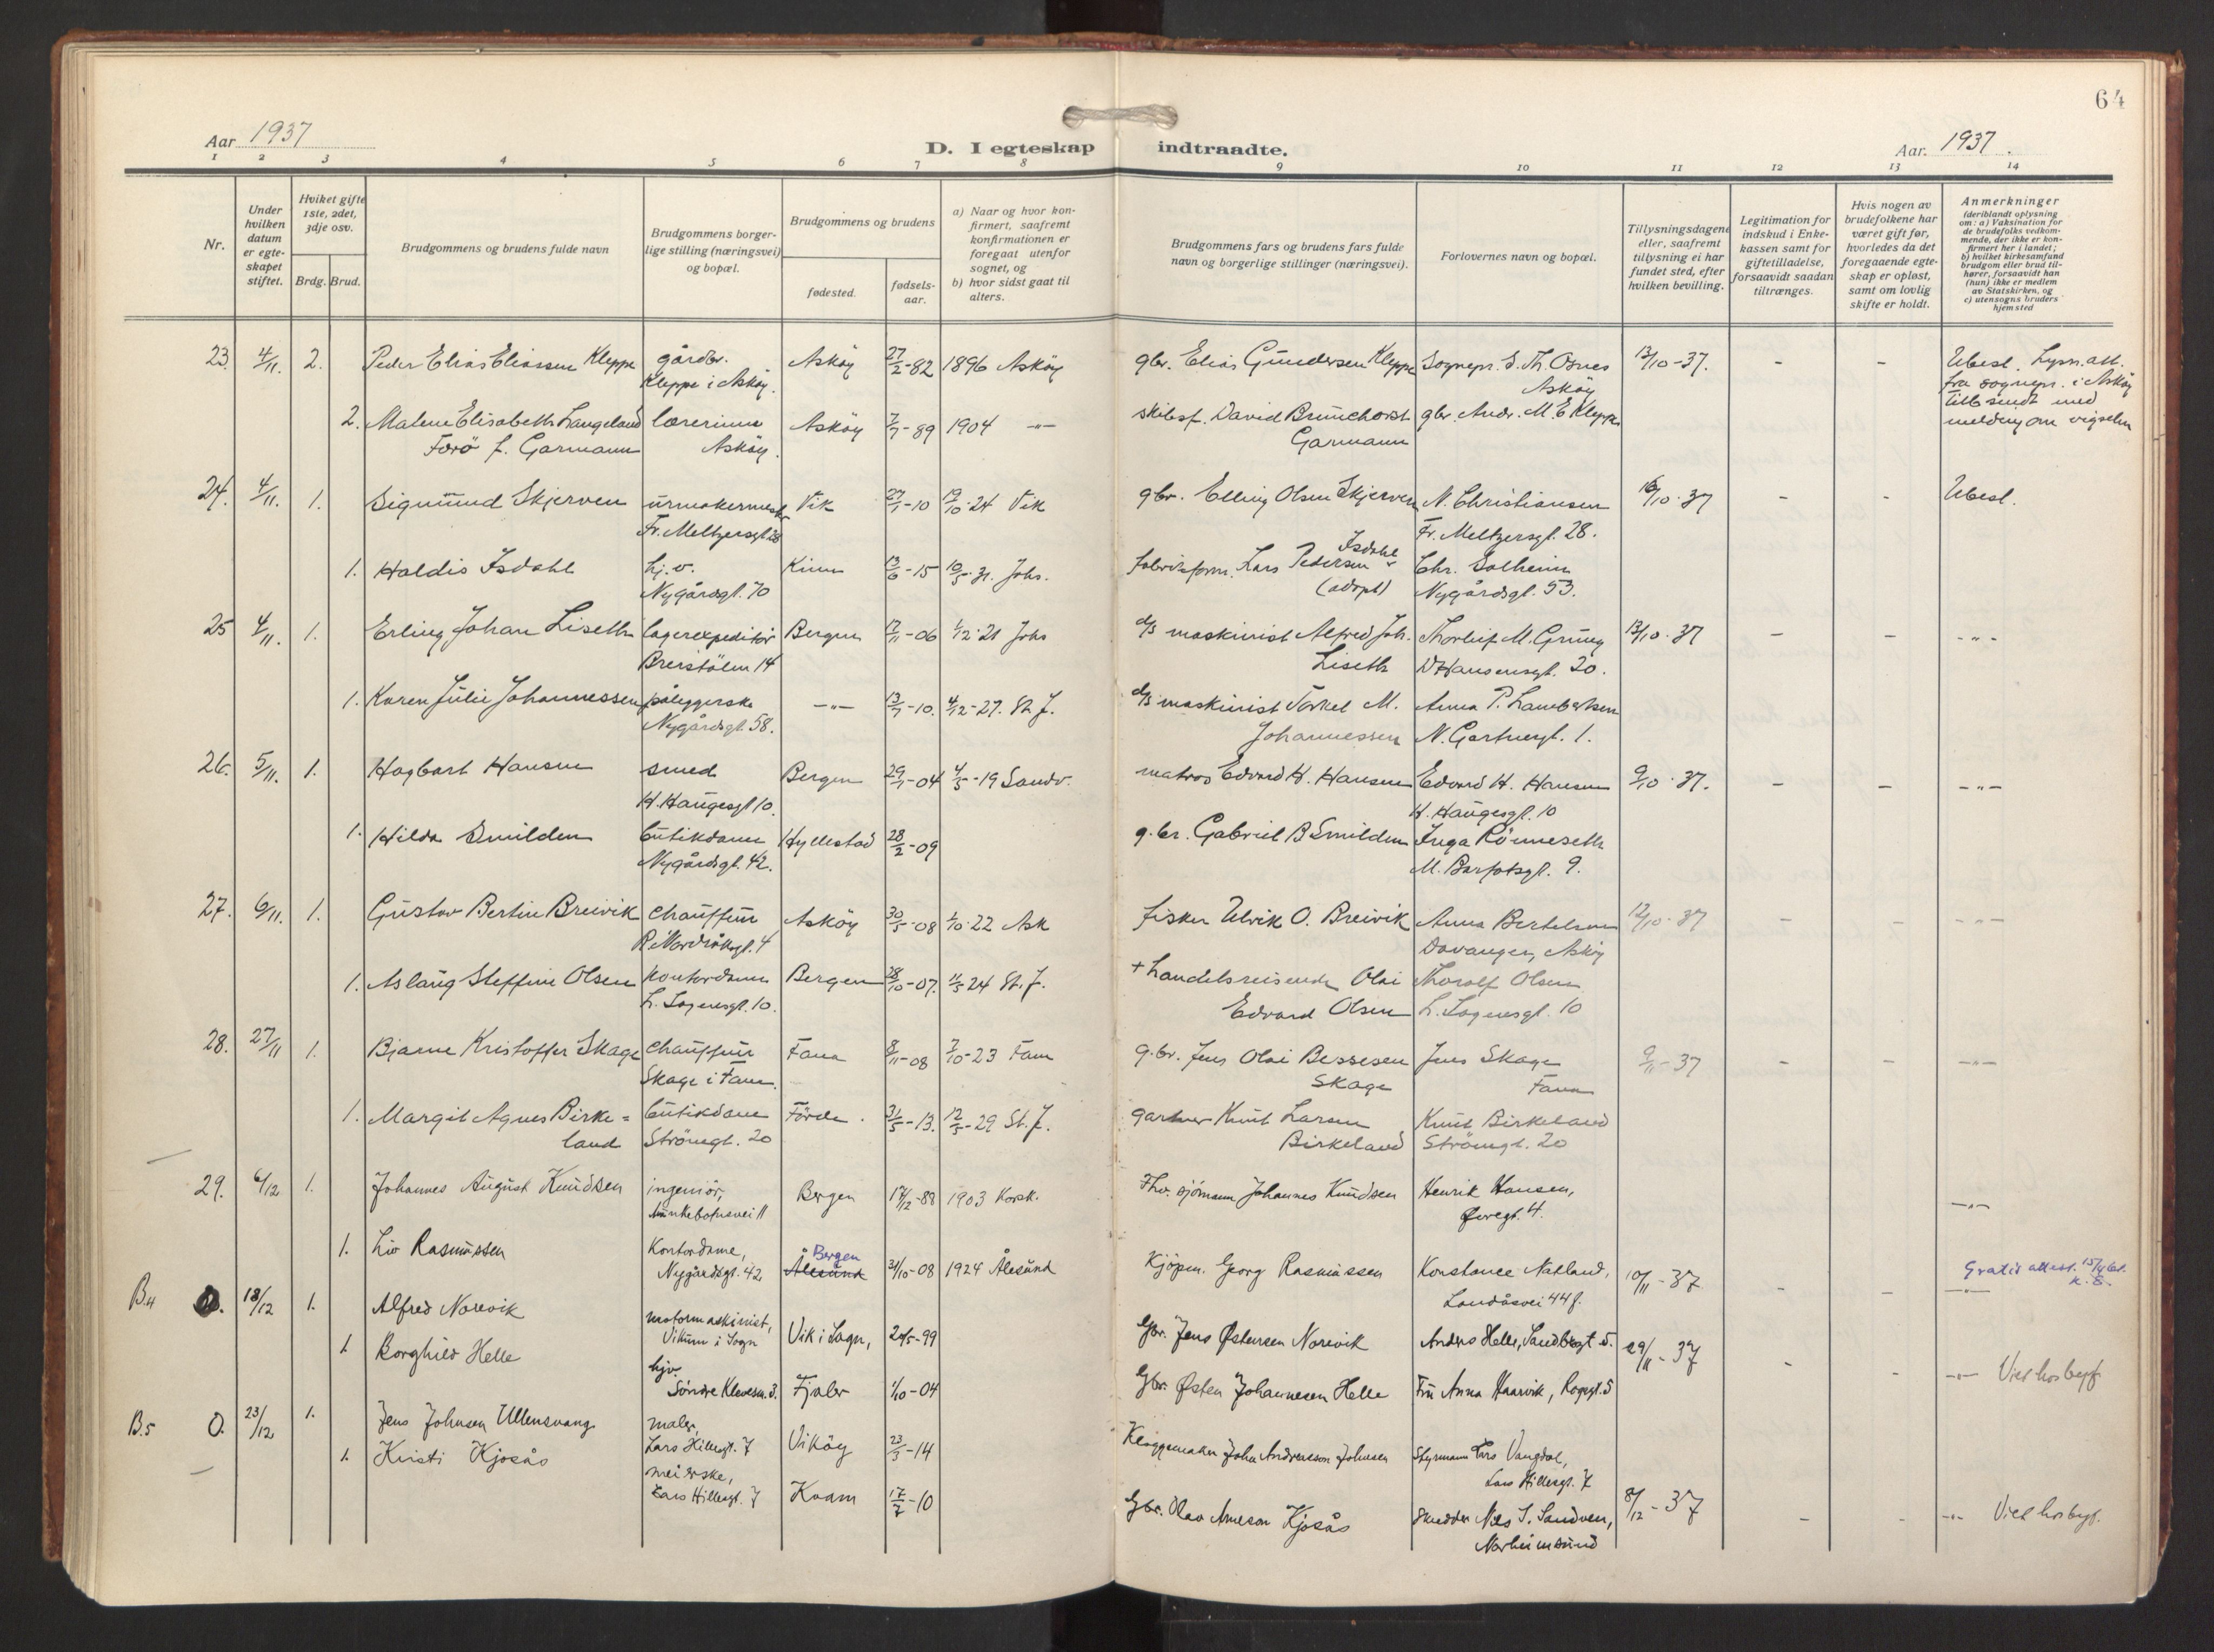 64
Aar 1937
D. I egteskap indtraadte.
Aar. 1937.
1 2 3 4 5 6 7 8 9 10 11 12 13 14
Nr.
Under hvilken datum er egte-skapet stiftet.
Hviket gifte 1ste, 2det, 3dje osv.
Brdg. Brud.
Brudgommens og brudens fulde navn
Brudgommens borger-lige stilling (næringsvei) og bopæl.
Brudgommens og brudens
fødested.
fødsels-aar.
a) Naar og hvor kon-firmert, saafremt konfirmationen er foregaat utenfor sognet, og
b) hvor sidst gaat til alters.
Brudgommens fars og brudens fars fulde navn og borgerlige stillinger (næringsvei).
Forlovernes navn og bopæl.
Tillysningsdagene eller, saafremt tillysning ei har fundet sted, efter hvilken bevilling.
Legitimation for indskud i Enke-kassen samt for giftetilladelse, forsaavidt saadan tiltrænges.
Hvis nogen av brudefolkene har været gift før, hvorledes da det foregaaende egte-skap er opløst, samt om lovlig skifte er holdt.
Anmerkninger
(deriblandt oplysning om: a) Vaksination for de brudefolks vedkom-mende, der ikke er kon-firmert her i landet; b) hvilket kirkesamfund brudgom eller brud til-hører, forsaavidt han (hun) ikke er medlem av Statskirken, og c) utensogns bruders hjemsted
23. 4/11. 2. Peder Elias Eliassen Kleppe gårdbr. Askøy 27/2-82 1896 Askøy gbr. Elias Gundersen Kleppe Sognepr. S. Th. Osnes 13/10-37. - - Ubesl. Lysn.att.
Kleppe i Askøy. Askøy fra sognepr. i Askøy
2. Malene Elisabeth Langeland lærerinne Askøy 7/7-89 1904 -"- skibsf. David Brunchorst gbr. Andr. M. E. Kleppe tilbsendt med
Færø f. Garmann Askøy. Garmann melding om vigselen
24. 4/11. 1. Sigmund Skjerven urmakermester Vik 27/1-10 19/10-24 Vik gbr. Elling Olsen Skjerven N. Christiansen 16/10-37 - - Ubesl.
Fr. Meltzersgt 28 Fr. Meltzersgt. 28.
1. Haldis Isdahl hj.v. Kinn 13/6-15 10/5-31. Johs. fabrikform. Lars Pedersen Isdahl Chr. Solheim
Nygårdsgt. 70 (adopt) Nygårdsgt. 53.
25 4/11. 1. Erling Johan Liseth lagerexpeditør Bergen 17/11-06 4/12-21 Johs d/s maskinist Alfred Joh. Thorleif M. Grung 13/10-37 - - -"-
Breistølen 14 Liseth DHansensgt. 20.
1. Karen Julie Johannessen påleggerske -"- 13/7-10. 4/12-27. St. J. d/s maskinist Torkel M. Anna P. Lambertsen
Nygårdsgt. 58. Johannessen N. Gartnergt. 1.
26. 5/11. 1. Hagbart Hansen smed Bergen 29/1-04 4/5-19 Sandv. matros Edvard H. Hansen Edvard H. Hansen 9/10-37. - - -"-
H. Haugesgt 10. H. Haugesgt. 10
1. Hilda Smilden butikdame Hyllestad 28/2-09 g.br. Gabriel B Smilden Inga Rønneseth
Nygårdsgt. 42. M. Barfotsgt. 9.
27. 6/11. 1. Gustav Bertin Breivik chauffeur Askøy 30/5-08 1/10-22 Ask fisker Ulrik O. Breivik Anna Bertelsen 12/10-37 - - -"-
R. Nordråksgt. 4 Davanger, Askøy
1. Aslaug Steffine Olsen kontordame Bergen 28/10-07. 11/5 24 St. J. + handelsreisende Olai Thoralf Olsen
L. Sagensgt. 10. Edvard Olsen L. Sagensgt. 10
28. 27/11 1. Bjarne Kristoffer Skage chauffeur Fana 8/11-08 7/10-23 Fana g.br. Jens Olai Bessesen Jens Skage 9/11-37 - - -"-
Skage i Fana. Skage Fana
1. Margit Agnes Birke= butikdame Førde. 31/5-13. 12/5-29 St. J. gartner Knut Larsen Knut Birkeland
land Strømgt. 20 Birkeland Strømgt. 20
29. 6/12 1. Johannes August Knudsen ingeniør, Bergen 17/12-88 1903 Korsk. Fhv. sjømann Johannes Knudsen Henrik Hansen, -"-
Munkebotnsvei 11 Øvregt. 4.
1. Liv Rasmussen Kontordame, Bergen Ålesund 31/10-08 1924 Ålesund Kjøpm. Georg Rasmussen Konstance Natland, 10/11-37 - - Gratis attest.
Nygårdsgt. 42 Landåsvei 44 f. -"-
B.4 0. 18/12 1. Alfred Norevik motormaskinist, Vik i Sogn, 20/5-99 Gbr. Jens Østensen Norevik Anders Helle, Sandbrogt 5. 29/11-37
Vikum i Sogn
1. Borghild Helle hjv. Fjaler 1/10-04 Gbr. Østen Johannesen Helle Frk Anna Haarvik, Rosegt. 5 - - -"- Viet hos byf.
Søndre Klevesm. 3.
B.5 0. 23/12 1. Jens Johnsen Ullensvang maler, Vikøy 23/3-14 Kloggemaker John Andreassen Johnsen Styrmann Lars Vangdal,
Lars Hillesgt. 7 Lars Hillesgt. 7
1. Kristi Kjosås meierske, Kvam 17/7-10 Gbr. Olav Arneson Kjosås Skredder Nils S. Sandven, 8/12-37 - - -"- Viet hos byf.
Lars Hillesgt. 7 Norheimsund